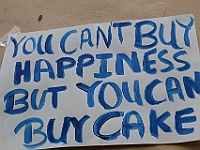 YOU CANT BUY
HAPPINESS
BUT YOU CAN
BUY CAKE